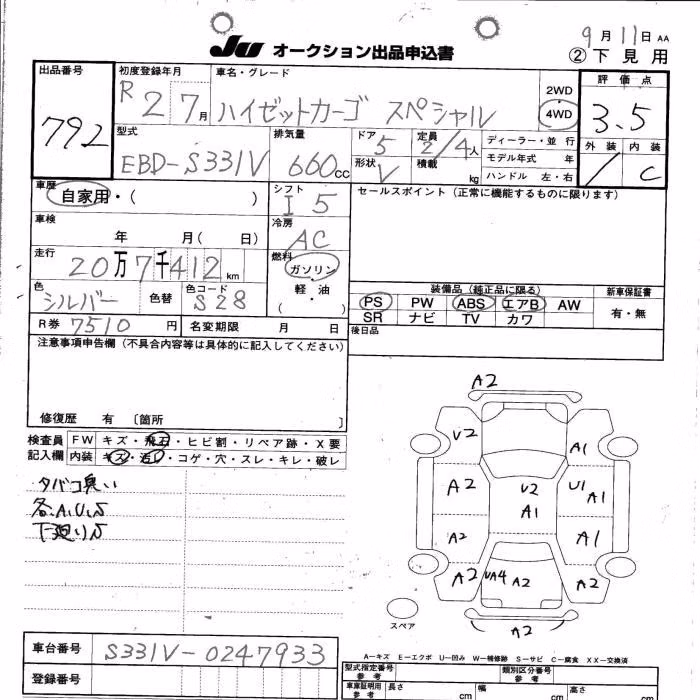 9月11日 AA
JU オークション出品申込書
② 下見用
出品番号 792
初度登録年月 R2 7月
車名・グレード ハイゼットカーゴ スペシャル
2WD 4WD
評価点 3.5
外装 / 内装 C
型式 EBD-S331V
排気量 660cc
ドア 5
定員 2/4人
形状 V
積載 kg
ディーラー・並行
モデル年式 年
ハンドル 左・右
車歴 自家用・( )
シフト I5
セールスポイント (正常に機能するものに限ります)
車検 年 月( 日)
冷房 AC
走行 20万7千412km
燃料 ガソリン 軽・油 ( )
色 シルバー 色替
色コード S28
装備品(純正品に限る)
新車保証書
PS PW ABS エアB AW
有・無
SR ナビ TV カワ
R券 7510円
名変期限 月 日
後日品
注意事項申告欄(不具合内容等は具体的に記入してください)
修復歴 有 〔箇所 〕
検査員記入欄
FW キズ・飛石・ヒビ割・リペア跡・X要
内装 キズ・汚レ・コゲ・穴・スレ・キレ・破レ
タバコ臭い
各A,U,S
下廻りS
A2
U2
A1
A2
U2
A1
U1
A1
A2
A1
A2
UA4
A2
A2
A2
スペア
A-キズ E-エクボ U-凹み W-補修跡 S-サビ C-腐食 XX-交換済
車台番号 S331V-0247933
登録番号
型式指定番号 参考
類別区分番号 参考
車庫証明用 参考
長さ cm
幅 cm
高さ cm